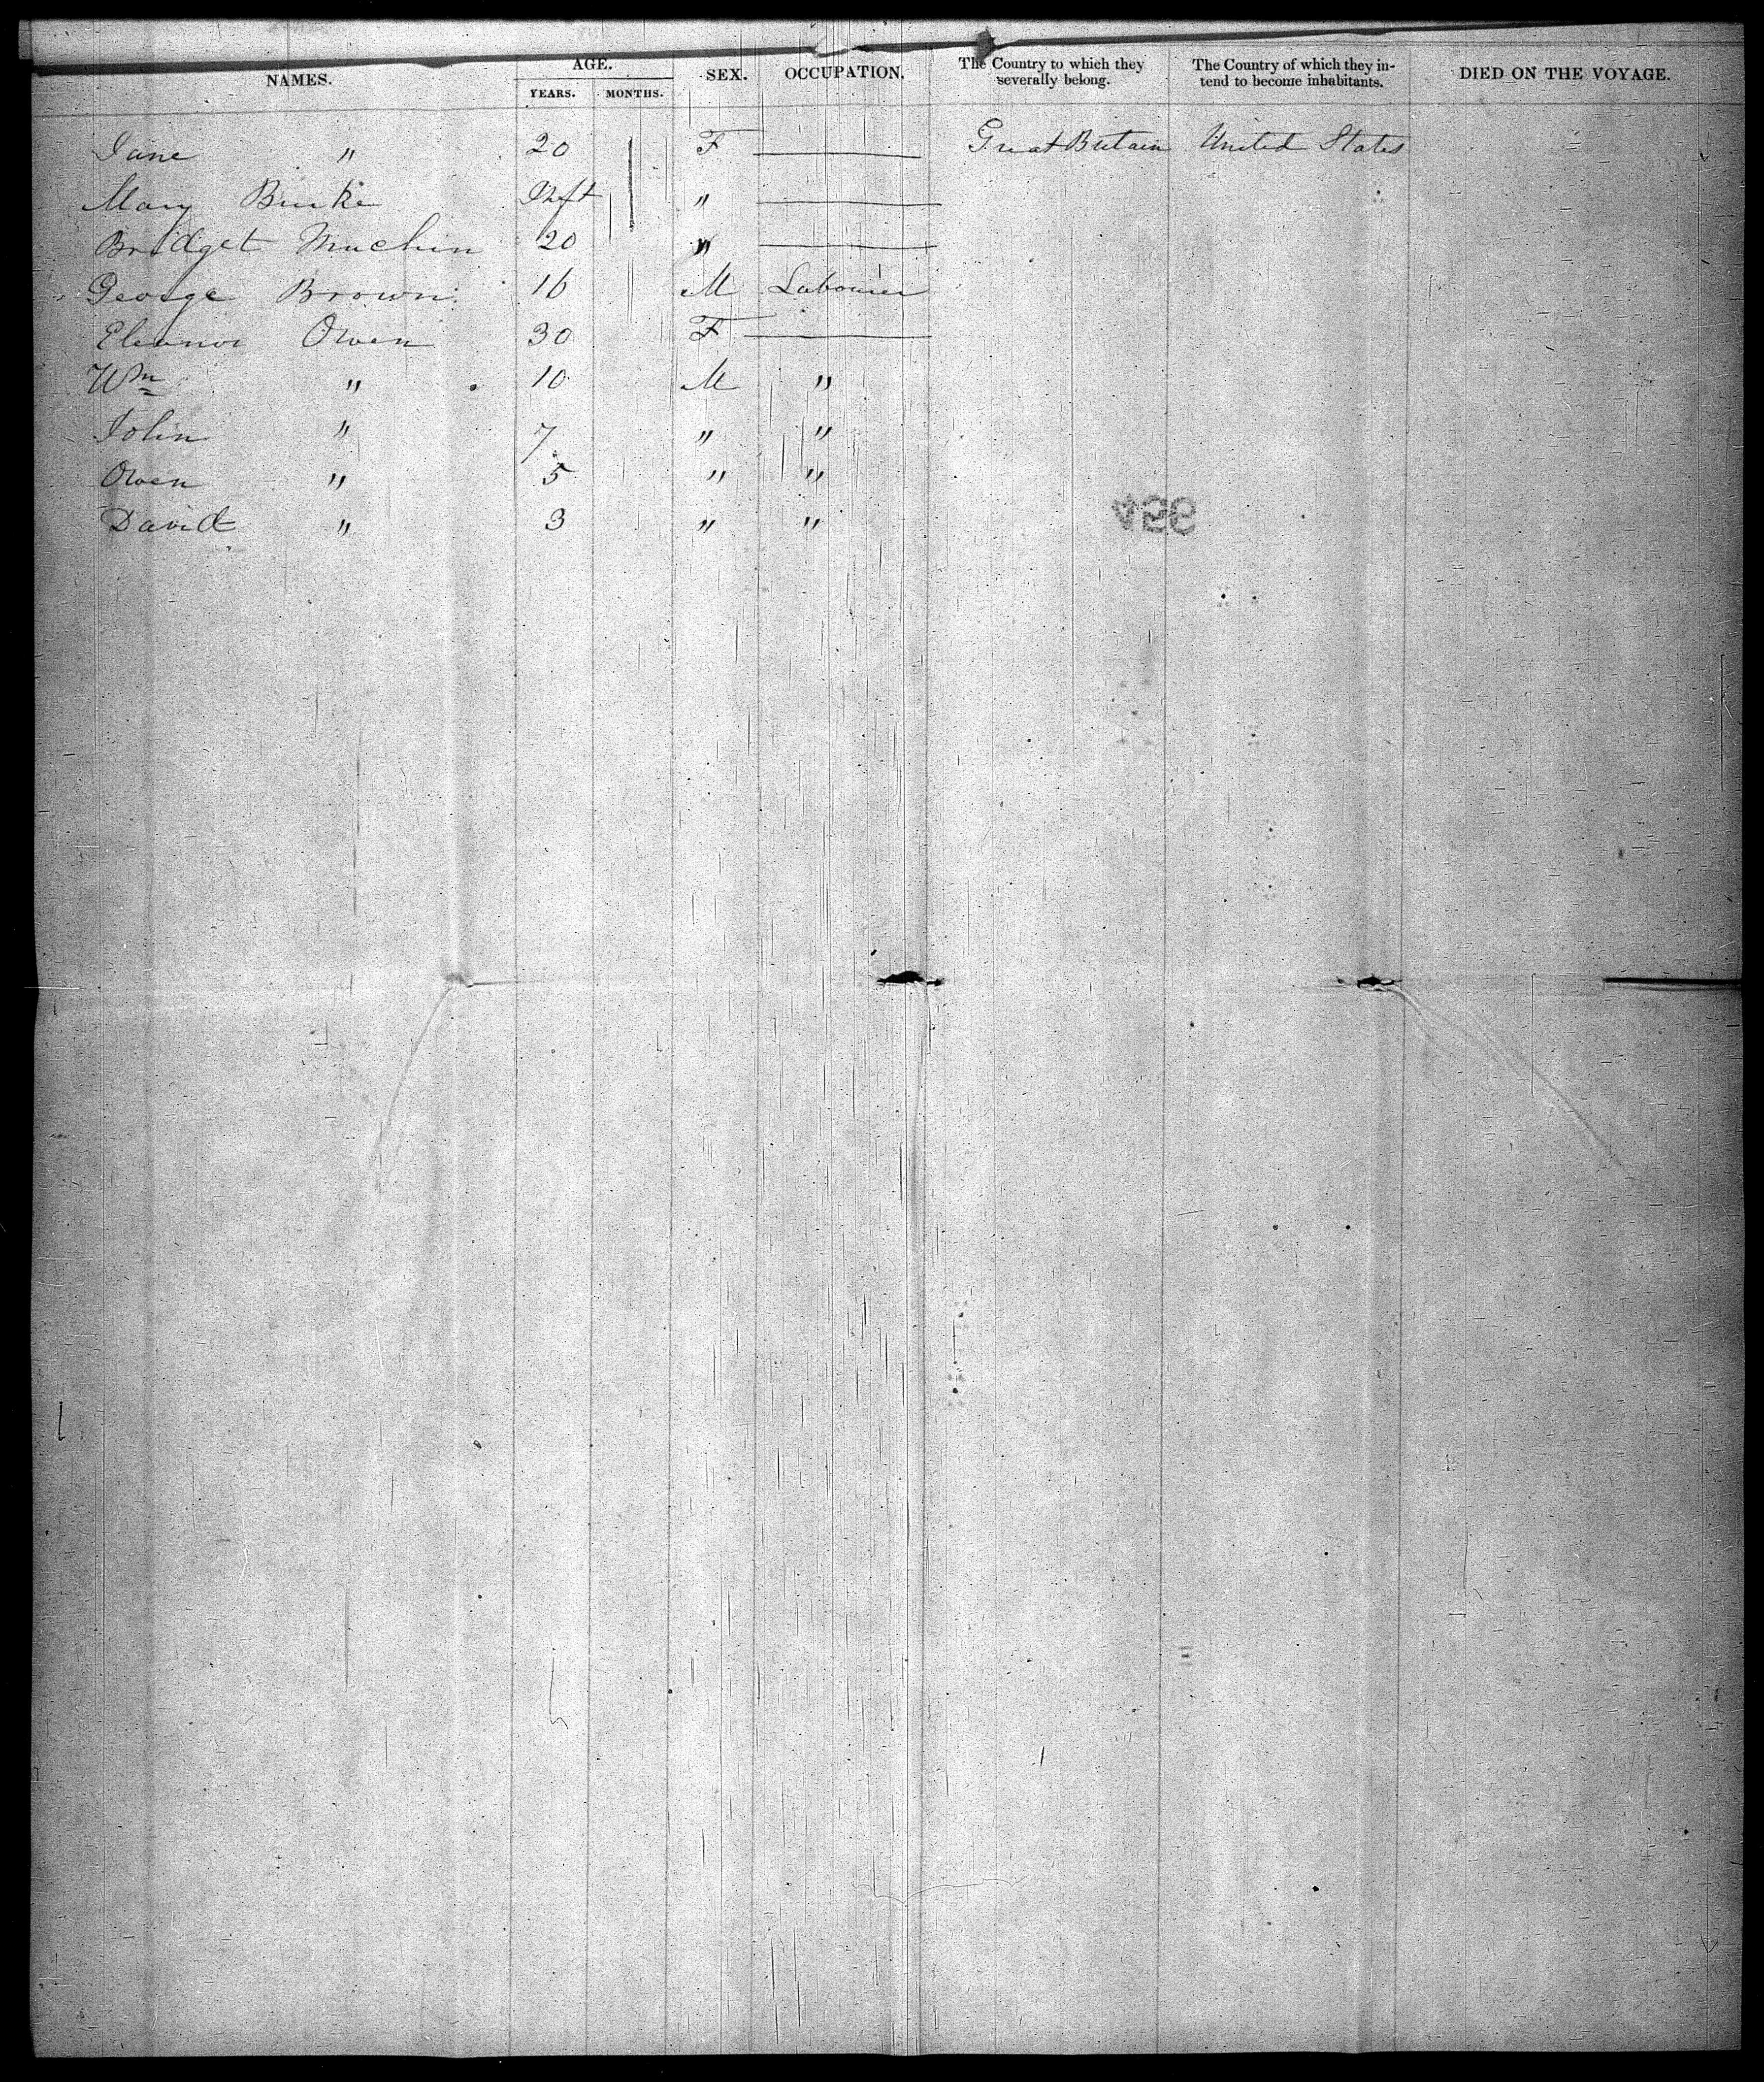 NAMES. AGE. YEARS. MONTHS. SEX. OCCUPATION. The Country to which they severally belong. The Country of which they intend to become inhabitants. DIED ON THE VOYAGE.
Jane " 20 F Great Britain United States
Mary Burke "
Bridget 20 "
George Brown 16 M Labourer
Eleanor Owen 30 F
Wm " 10 M "
John " 7 " "
Owen " 5 " "
David " 3 " "